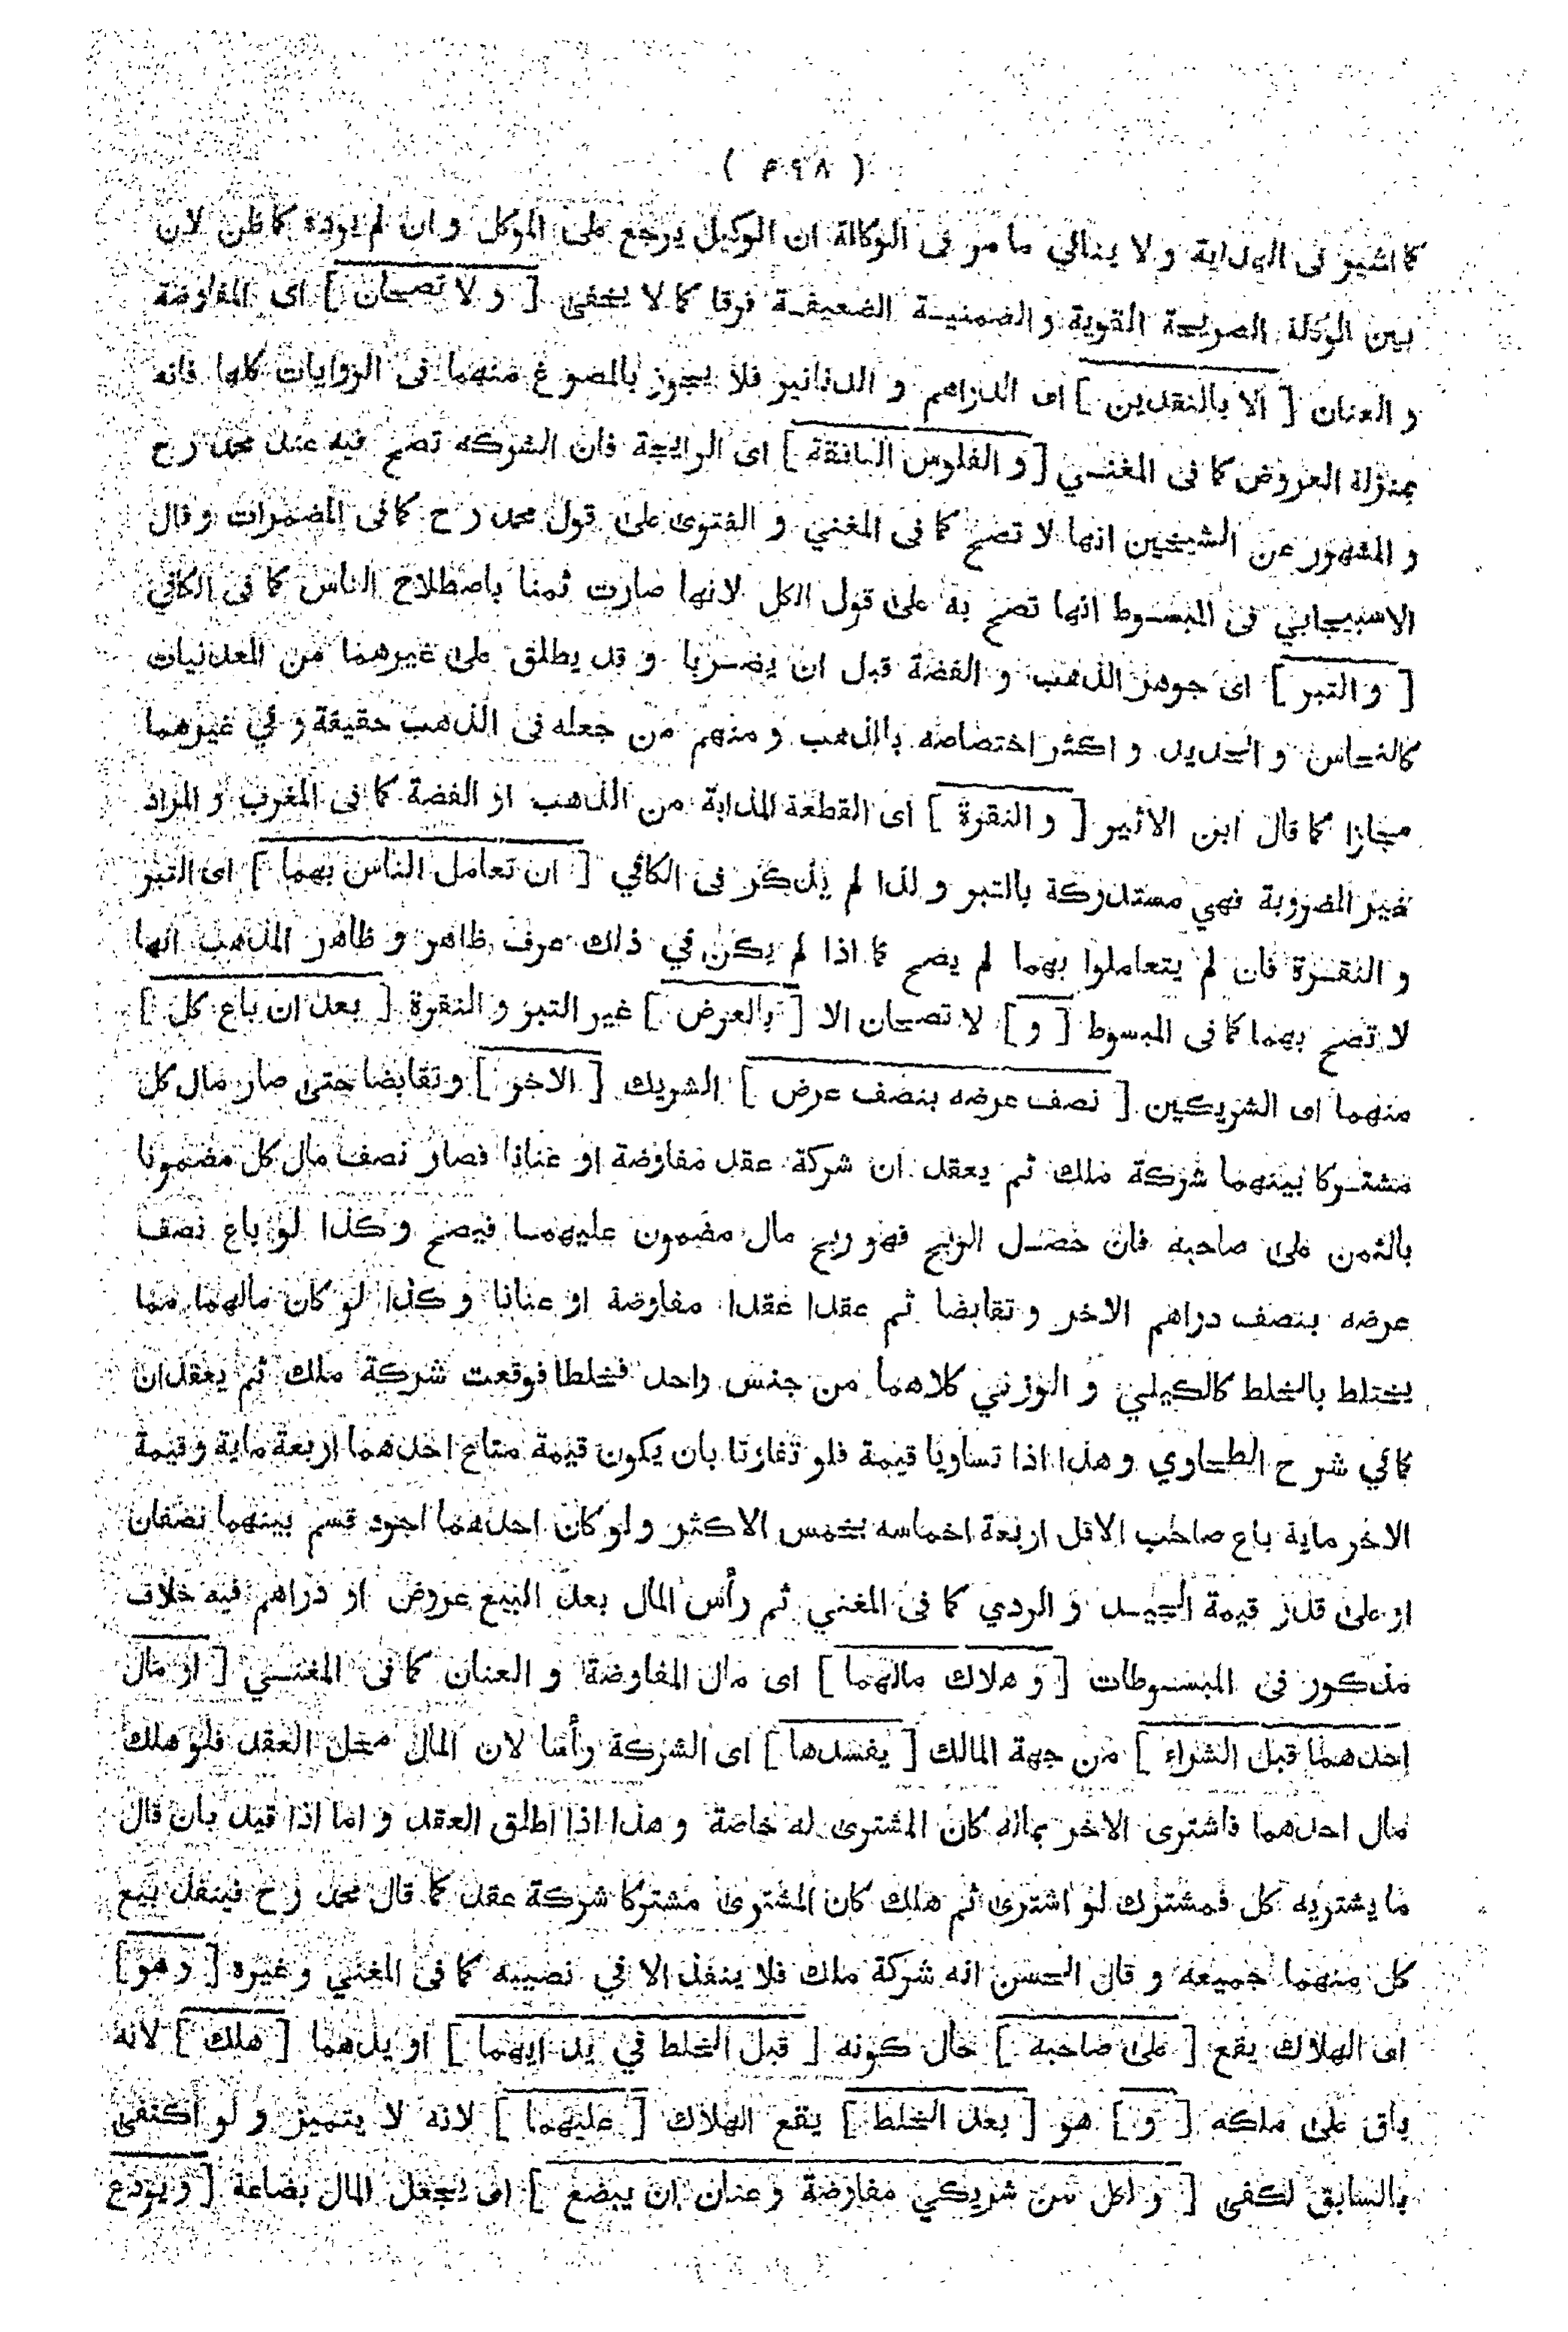 ( ۴۹۸ )
كما اشير فى الهداية و لا ينافي ما مر فى الوكالة ان الوكيل يرجع على الموكل و ان لم يوده كما ظن لان
بين الوكالة الصريحة القوية و الضمنيـة الضعيفـة فرقا كما لا يخفى [ و لا تصحان ] اى المفاوضة
و العنان [ الا بالنقدين ] اى الدراهم و الدنانير فلا يجوز بالمصوغ منهما فى الروايات كلها فانه
بمنزلة العروض كما فى المغنـي [ و الفلوس النافقة ] اى الرايجة فان الشركه تصح فيه عند محمد رح
و المشهور عن الشيخين انها لا تصح كما فى المغني و الفتوى على قول محمد رح كما فى المضمرات و قال
الاسبيجابي فى المبسـوط انها تصح به على قول الكل لانها صارت ثمنا باصطلاح الناس كما فى الكافي
[ و التبر ] اى جوهر الذهب و الفضة قبل ان يضـربا و قد يطلق على غيرهما من المعدنيات
كالنحاس و الحديد و اكثر اختصاصه بالذهب و منهم من جعله فى الذهب حقيقة و في غيرهما
مجازا كما قال ابن الاثير [ و النقرة ] اى القطعة المذابة من الذهب او الفضة كما فى المغرب و المراد
غير المضروبة فهي مستدركة بالتبر و لذا لم يذكر فى الكافي [ ان تعامل الناس بهما ] اى التبر
و النقـرة فان لم يتعاملوا بهما لم يصح كما اذا لم يكن في ذلك عرف ظاهر و ظاهر المذهب انها
لا تصح بهما كما فى المبسوط [ و ] لا تصحان الا [ بالعرض ] غير التبر و النقرة [ بعد ان باع كل ]
منهما اى الشريكين [ نصف عرضه بنصف عرض ] الشريك [ الاخر ] و تقابضا حتى صار مال كل
مشتـركا بينهما شركة ملك ثم يعقد ان شركة عقد مفاوضة او عنانا فصار نصف مال كل مضمونا
بالثمن على صاحبه فان حصـل الربح فهو ربح مال مضمون عليهمـا فيصح و كذا لو باع نصف
عرضه بنصف دراهم الاخر و تقابضا ثم عقدا عقدا مفاوضة او عنانا و كذا لو كان مالهما مما
يختلط بالخلط كالكيلي و الوزني كلاهما من جنس واحد فخلطا فوقعت شركة ملك ثم يعقدان
كما في شرح الطحاوي و هذا اذا تساويا قيمة فلو تفاوتا بان يكون قيمة متاع احدهما اربعة ماية و قيمة
الاخر ماية باع صاحب الاقل اربعة اخماسه بخمس الاكثر و لو كان احدهما اجود قسم بينهما نصفان
او على قدر قيمة الجيـد و الردي كما فى المغني ثم رأس المال بعد البيع عروض او دراهم فيه خلاف
مذكور فى المبسـوطات [ و هلاك مالهما ] اى مال المفاوضة و العنان كما فى المغنـي [ او مال
احدهما قبل الشراء ] من جهة المالك [ يفسدها ] اى الشركة رأسا لان المال محل العقد فلو هلك
مال احدهما فاشترى الاخر بماله كان المشترى له خاصة و هذا اذا اطلق العقد و اما اذا قيد بان قال
ما يشتريه كل فمشترك لو اشترى ثم هلك كان المشترى مشتركا شركة عقد كما قال محمد رح فينفذ بيع
كل منهما جميعه و قال الحسن انه شركة ملك فلا ينفذ الا في نصيبه كما فى المغني و غيره [ و هو ]
اى الهلاك يقع [ على صاحبه ] حال كونه [ قبل الخلط في يد ايهما ] او يدهما [ هلك ] لانه
باق على ملكه [ و ] هو [ بعد الخلط ] يقع الهلاك [ عليهما ] لانه لا يتميز و لو اكتفى
بالسابق لكفى [ و لكل من شريكي مفاوضة و عنان ان يبضع ] اى يجعل المال بضاعة [ و يودع